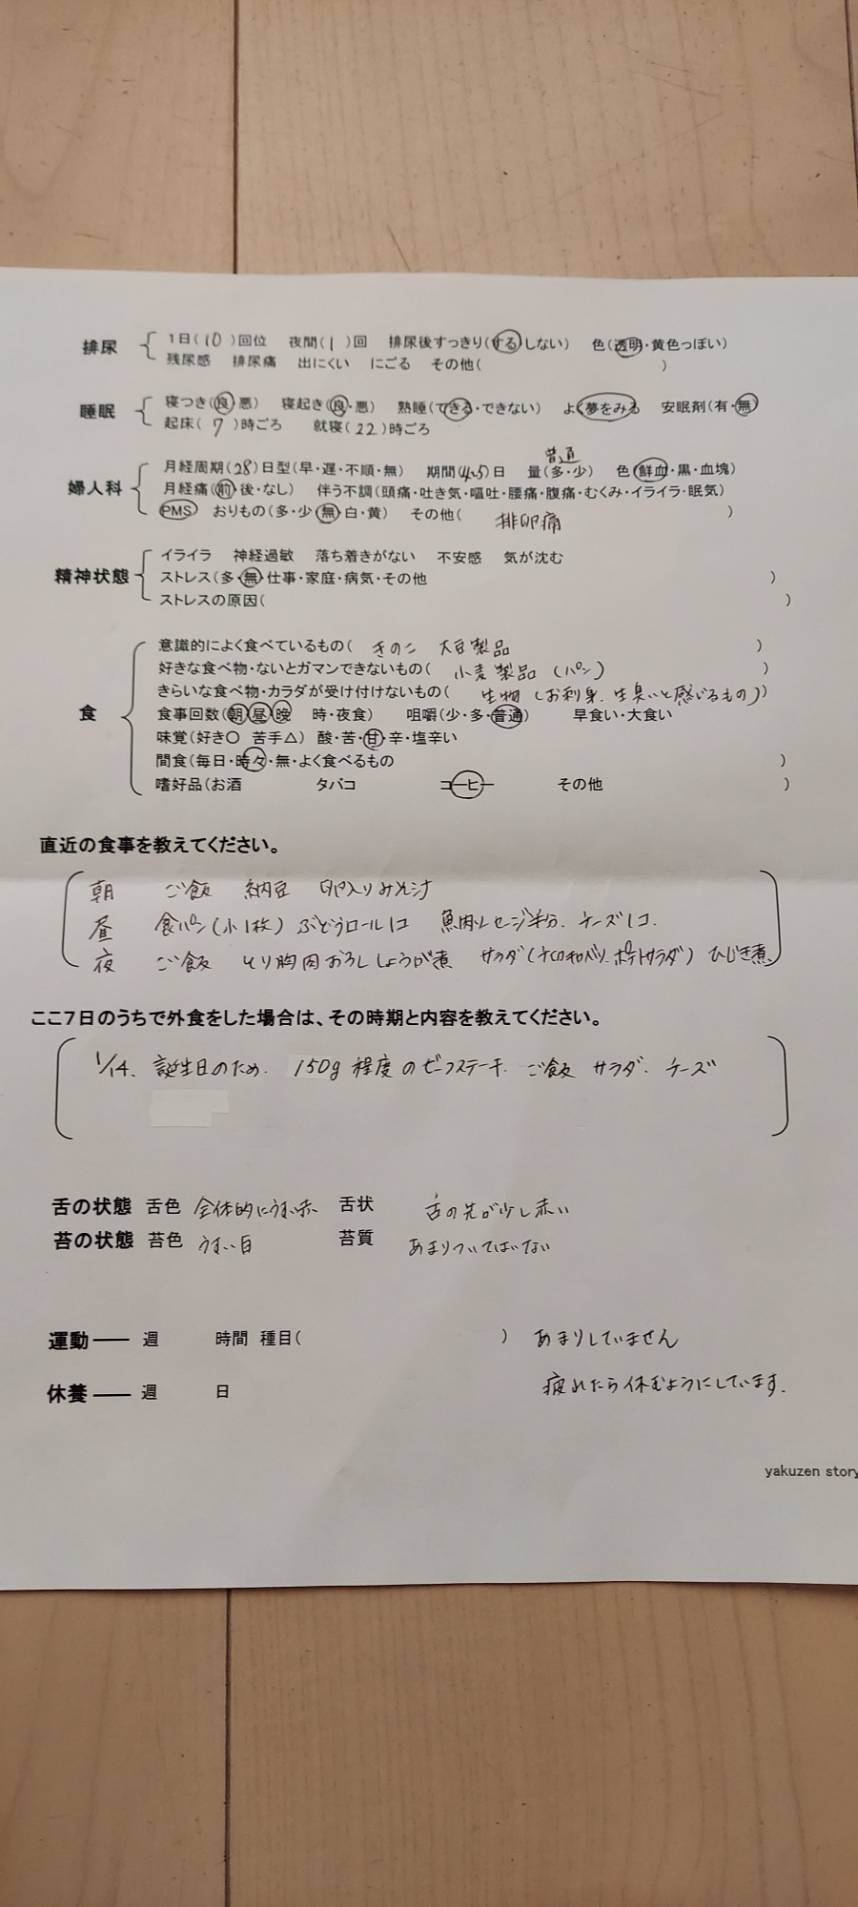 排尿 1日(10)回位 夜間(1)回 排尿後すっきり(する しない) 色(透明・黄色っぽい)
残尿感 排尿痛 出にくい にごる その他( )
睡眠 寝つき(良・悪) 寝起き(良・悪) 熟睡(できる・できない) よく夢をみる 安眠剤(有・無)
起床(7)時ごろ 就寝(22)時ごろ
普通
婦人科 月経周期(28)日型(早・遅・不順・無) 期間(4.5)日 量(多・少) 色(鮮血・黒・血塊)
月経痛(前・後・なし) 伴う不調(頭痛・吐き気・嘔吐・腰痛・腹痛・むくみ・イライラ・眠気)
PMS おりもの(多・少・無・白・黄) その他( 排卵痛 )
精神状態 イライラ 神経過敏 落ち着きがない 不安感 気が沈む
ストレス(多・無・仕事・家庭・病気・その他 )
ストレスの原因( )
食 意識的によく食べているもの( きのこ 大豆製品 )
好きな食べ物・ないとガマンできないもの( 小麦製品(パン) )
きらいな食べ物・カラダが受け付けないもの( 生物(お刺身、生臭いと感じるもの))
食事回数(朝・昼・晩 時・夜食) 咀嚼(少・多・普通) 早食い・大食い
味覚(好き○ 苦手△) 酸・苦・甘・辛・塩辛い
間食(毎日・時々・無・よく食べるもの )
嗜好品(お酒 タバコ コーヒー その他 )
直近の食事を教えてください。
朝 ご飯 納豆 卵入りみそ汁
昼 食パン(小1枚) ぶどうロール1コ 魚肉ソーセージ半分、チーズ1コ
夜 ご飯 とり胸肉おろししょうが煮 サラダ(キャベツ、ポテトサラダ) ひじき煮
ここ7日のうちで外食をした場合は、その時期と内容を教えてください。
1/14. 誕生日のため、150g程度のビーフステーキ、ご飯 サラダ、チーズ
舌の状態 舌色 全体的にうすい赤 舌状 舌の先が少し赤い
苔の状態 苔色 うすい白 苔質 あまりついてはいない
運動―― 週 時間 種目( ) あまりしていません
休養―― 週 日 疲れたら休むようにしています.
yakuzen story